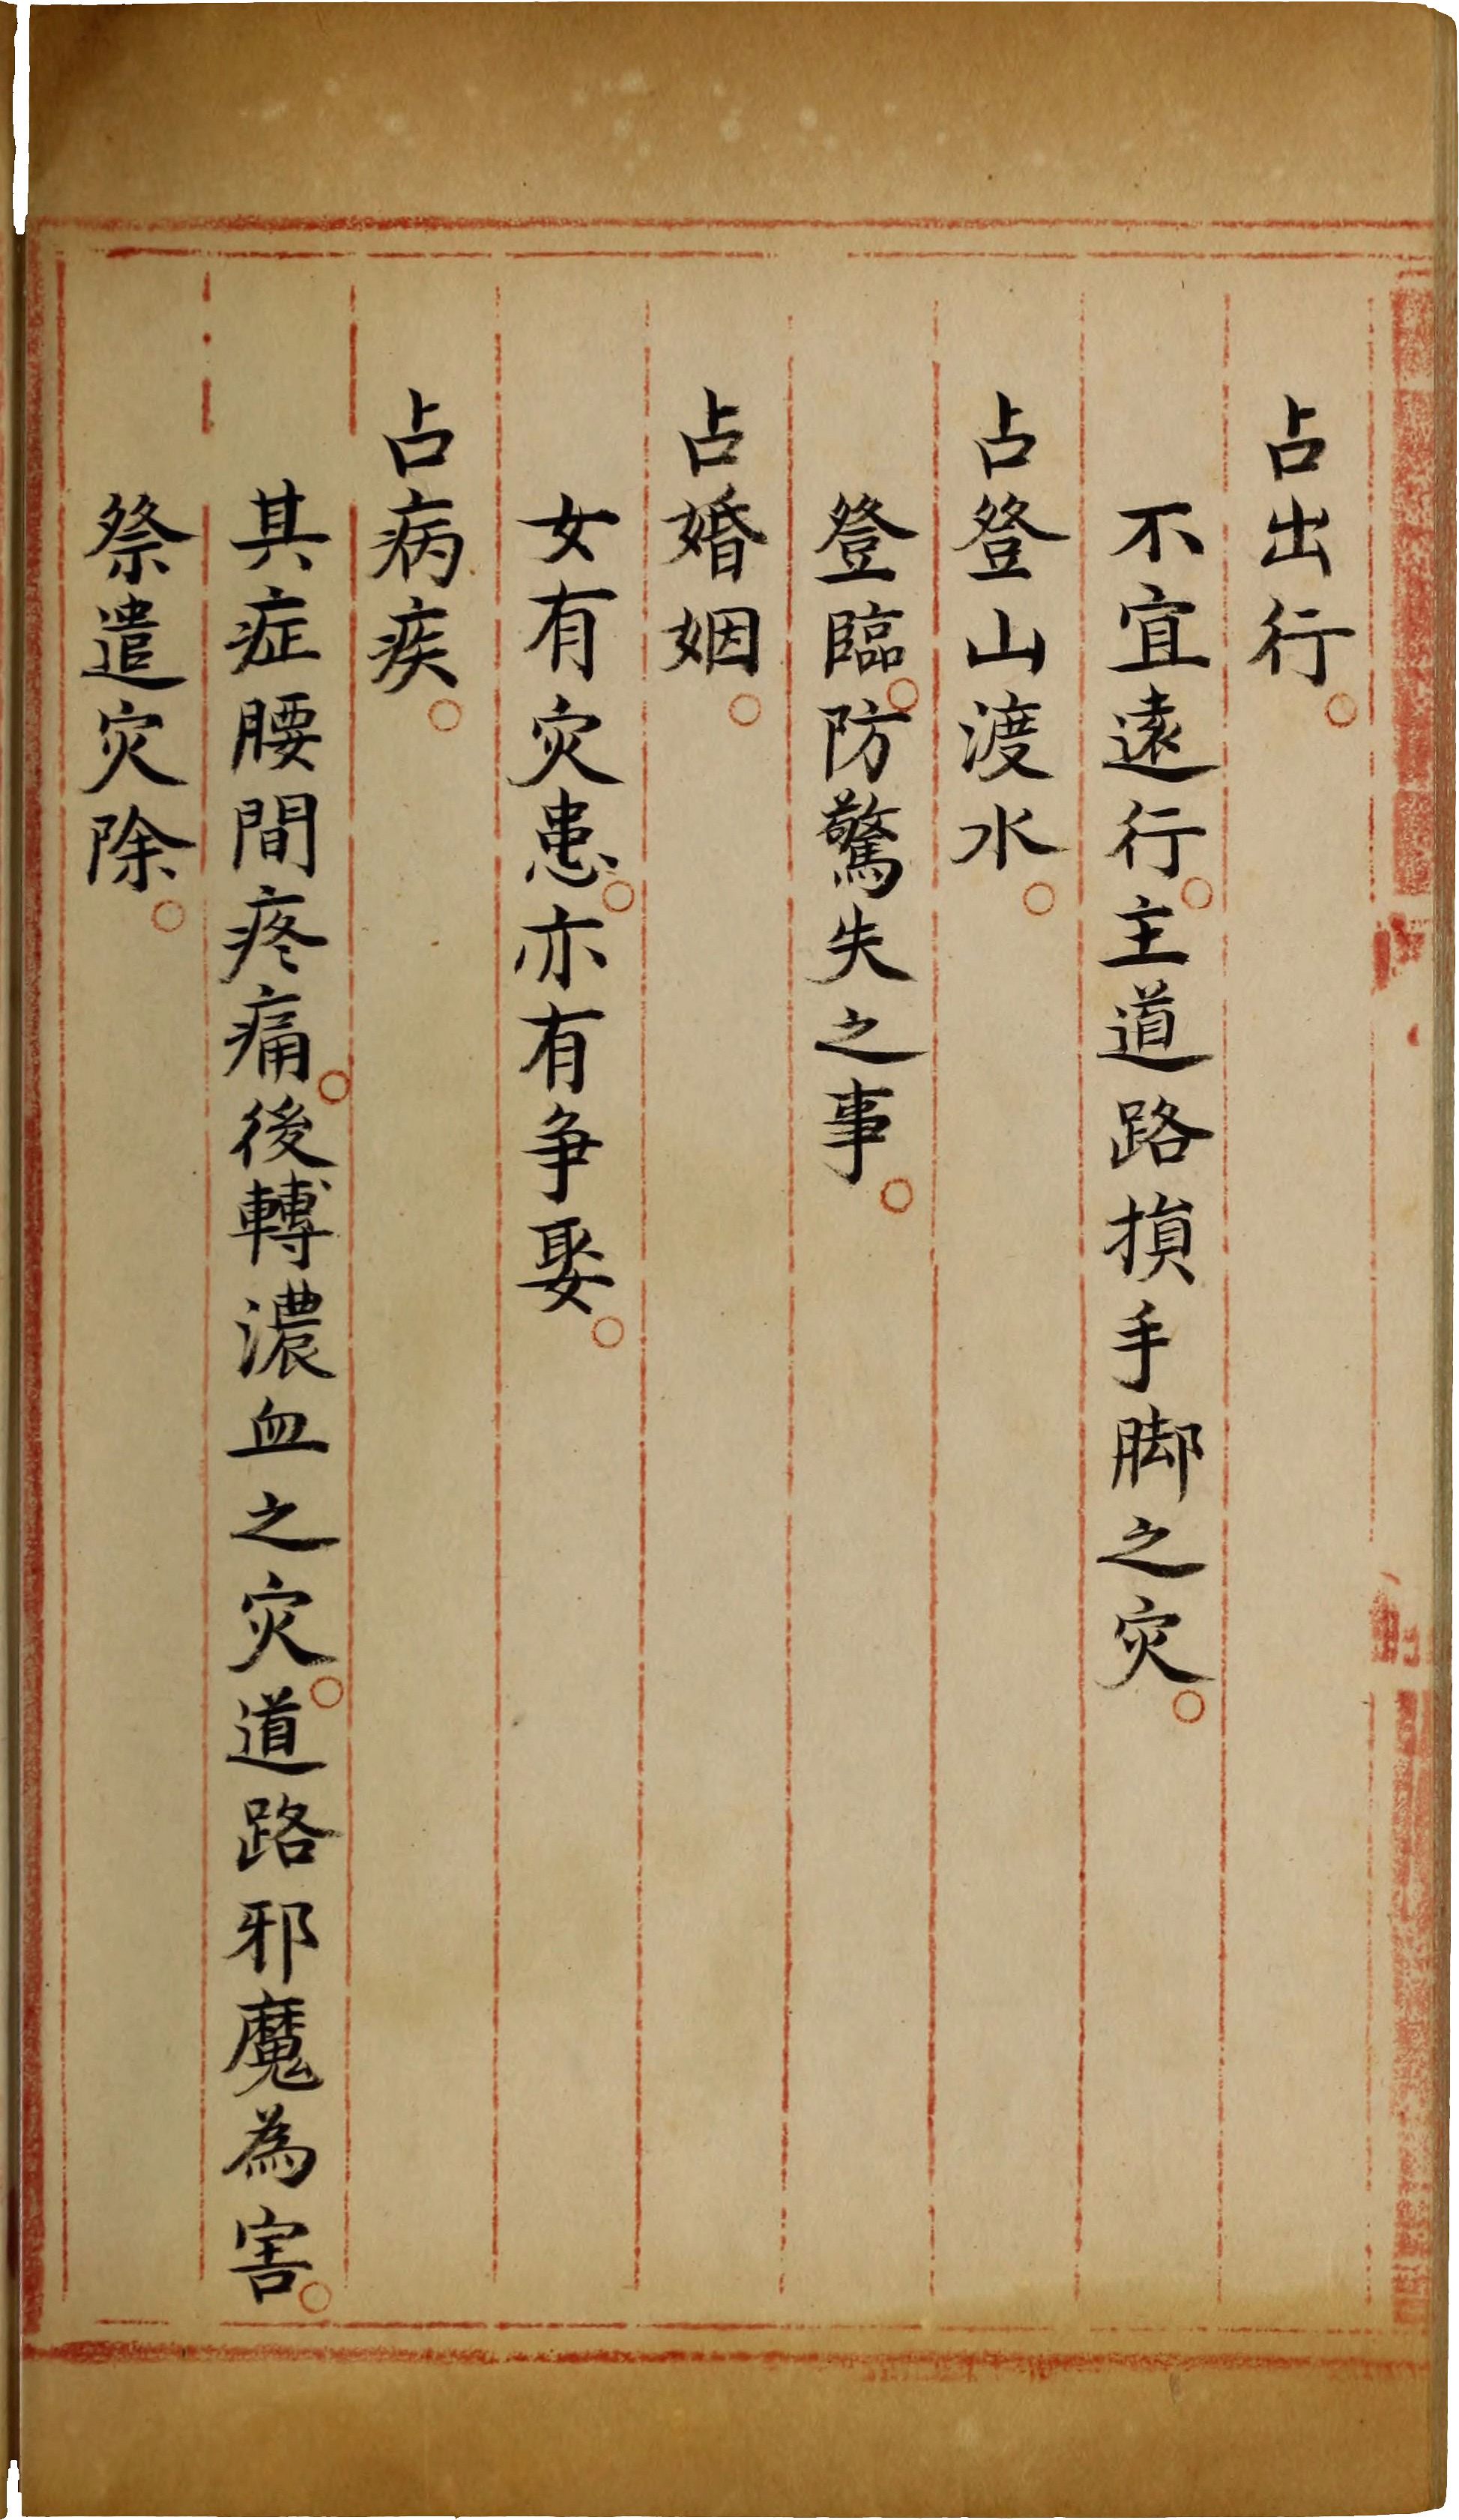 占出行。
不宜遠行。主道路損手脚之灾。
占登山渡水。
登臨。防驚失之事。
占婚姻。
女有灾患。亦有争娶。
占病疾。
其症腰間疼痛。後轉濃血之灾。道路邪魔為害。
祭遣灾除。